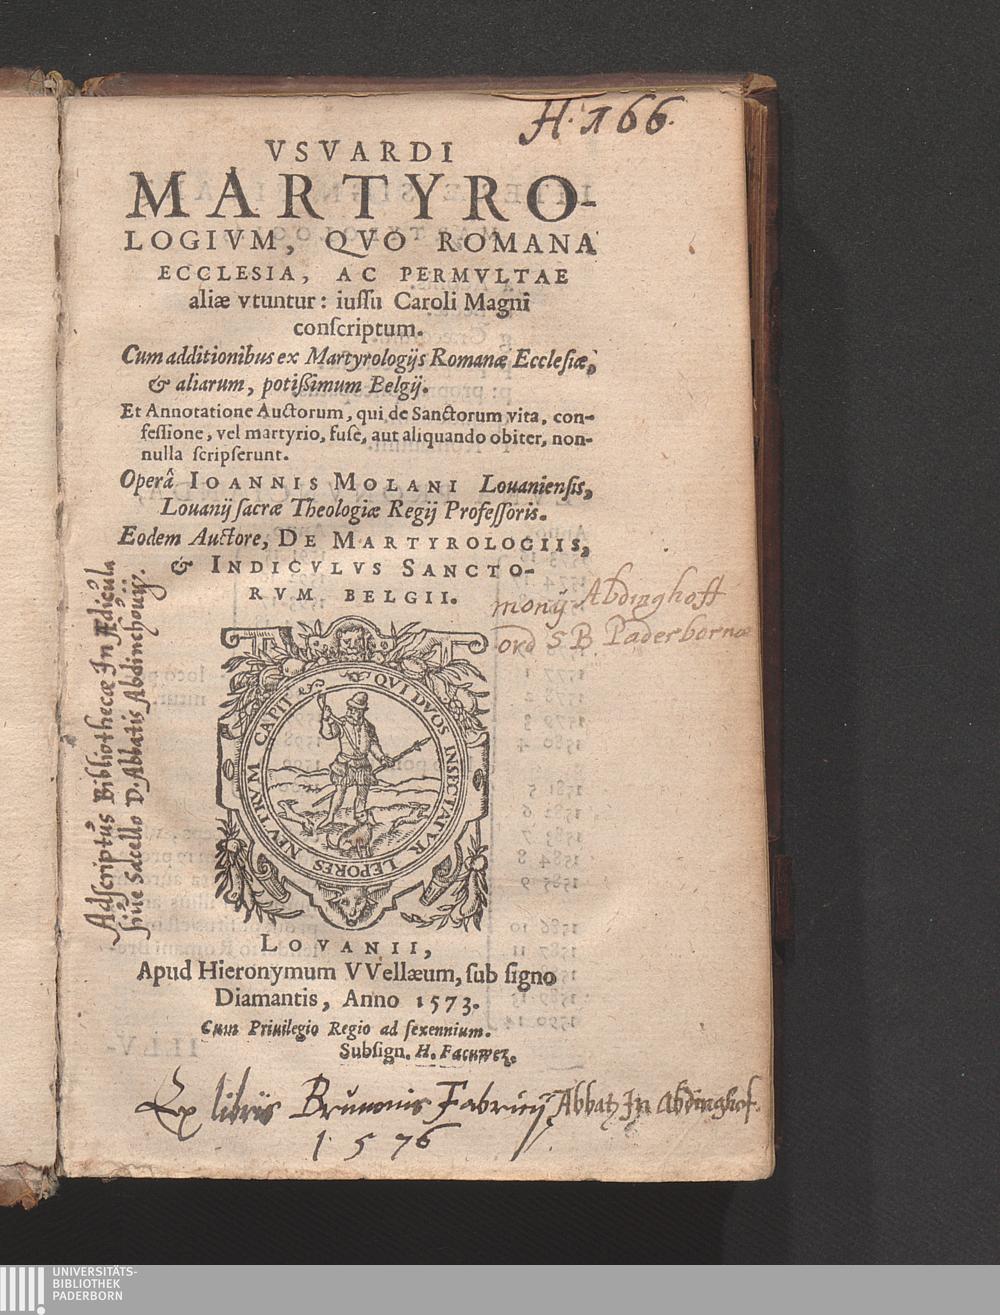 H. 166.
VSVARDI
MARTYRO-
LOGIVM, QVO ROMANA
ECCLESIA, AC PERMVLTAE
aliæ vtuntur: iuſſu Caroli Magni
conſcriptum.
Cum additionibus ex Martyrologijs Romanæ Eccleſiæ,
& aliarum, potiſſimum Belgij.
Et Annotatione Auctorum, qui de Sanctorum vita, con-
feſſione, vel martyrio, fuſè, aut aliquando obiter, non-
nulla ſcripſerunt.
Operâ IOANNIS MOLANI Louanienſis,
Louanij ſacræ Theologiæ Regij Profeſſoris.
Eodem Auctore, DE MARTYROLOGIIS,
& INDICVLVS SANCTO-
RVM BELGII.
monij Abdinghoff
ord S B. Paderbornæ
Adſcriptus Bibliothecæ In Ædicula
ſiue Sacello D. Abbatis Abdinchouij.
QVI DVOS INSECTATVR LEPORES NEVTRVM CAPIT
LOVANII,
Apud Hieronymum VVellæum, ſub ſigno
Diamantis, Anno 1573.
Cum Priuilegio Regio ad ſexennium.
Subſign. H. Facuwez.
Ex libris Brunonis Fabricij Abbatz In Abdinghof.
1576
UNIVERSITÄTS-
BIBLIOTHEK
PADERBORN